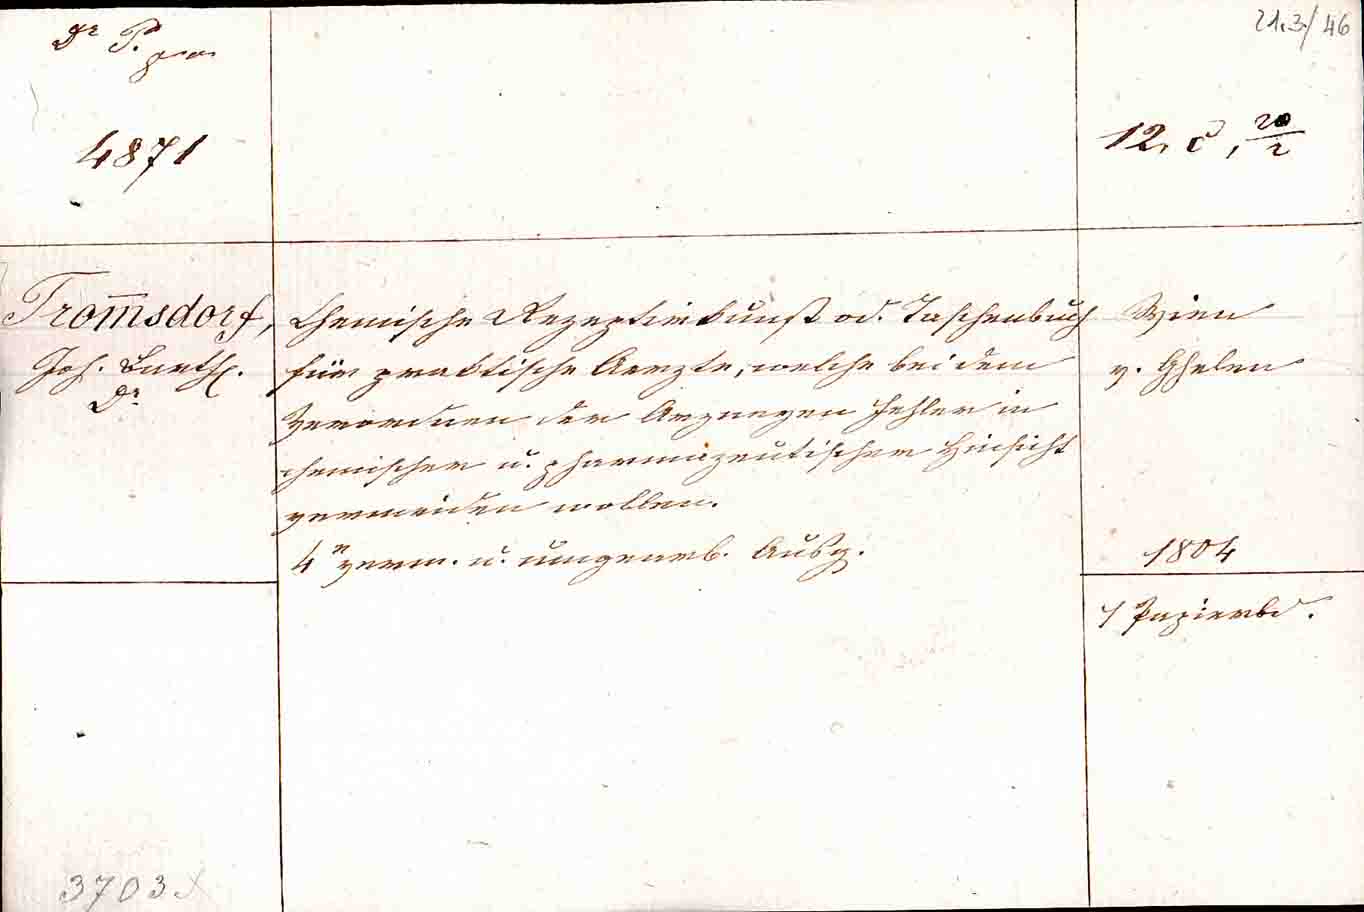 Dr P.
21.3./46
4871
12, c̆, 20/2
Trom̅sdorf,
Joh. Barth.
Dr
Chemische Rezeptirkunst od. Taschenbuch
für praktische Aerzte, welche bei dem
Verordnen der Arzneyen Fehler in
chemischer u. pharmazeutischer Hinsicht
vermeiden wollen.
4e verm. u. umgearb. Ausg.
Wien
v. Ghelen
1804
1 Papierbd.
3703